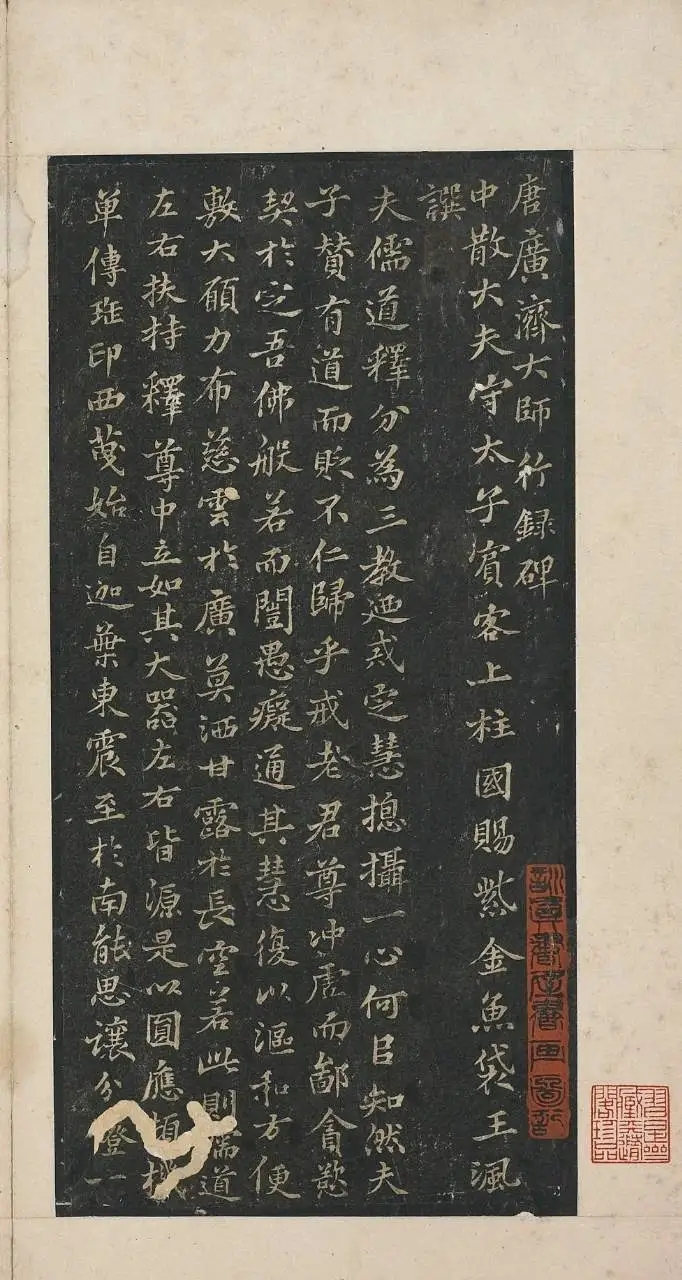 唐廣濟大師行録碑
中散大夫守太子賓客上柱國賜紫金魚袋王諷
譔
夫儒道釋分為三教迺戒定慧摠攝一心何㠯知然夫
子賛有道而貶不仁歸乎戒老君尊冲虛而鄙貪慾
契於定吾佛般若而誾愚癡通其慧復以漚和方便
敷大願力布慈雲於廣莫洒甘露於長空若此則儒道
左右扶持釋尊中立如其大器左右皆源是以圓應頓機
單傳班印西蔑始自迦葉東震至於南能思讓分燈一